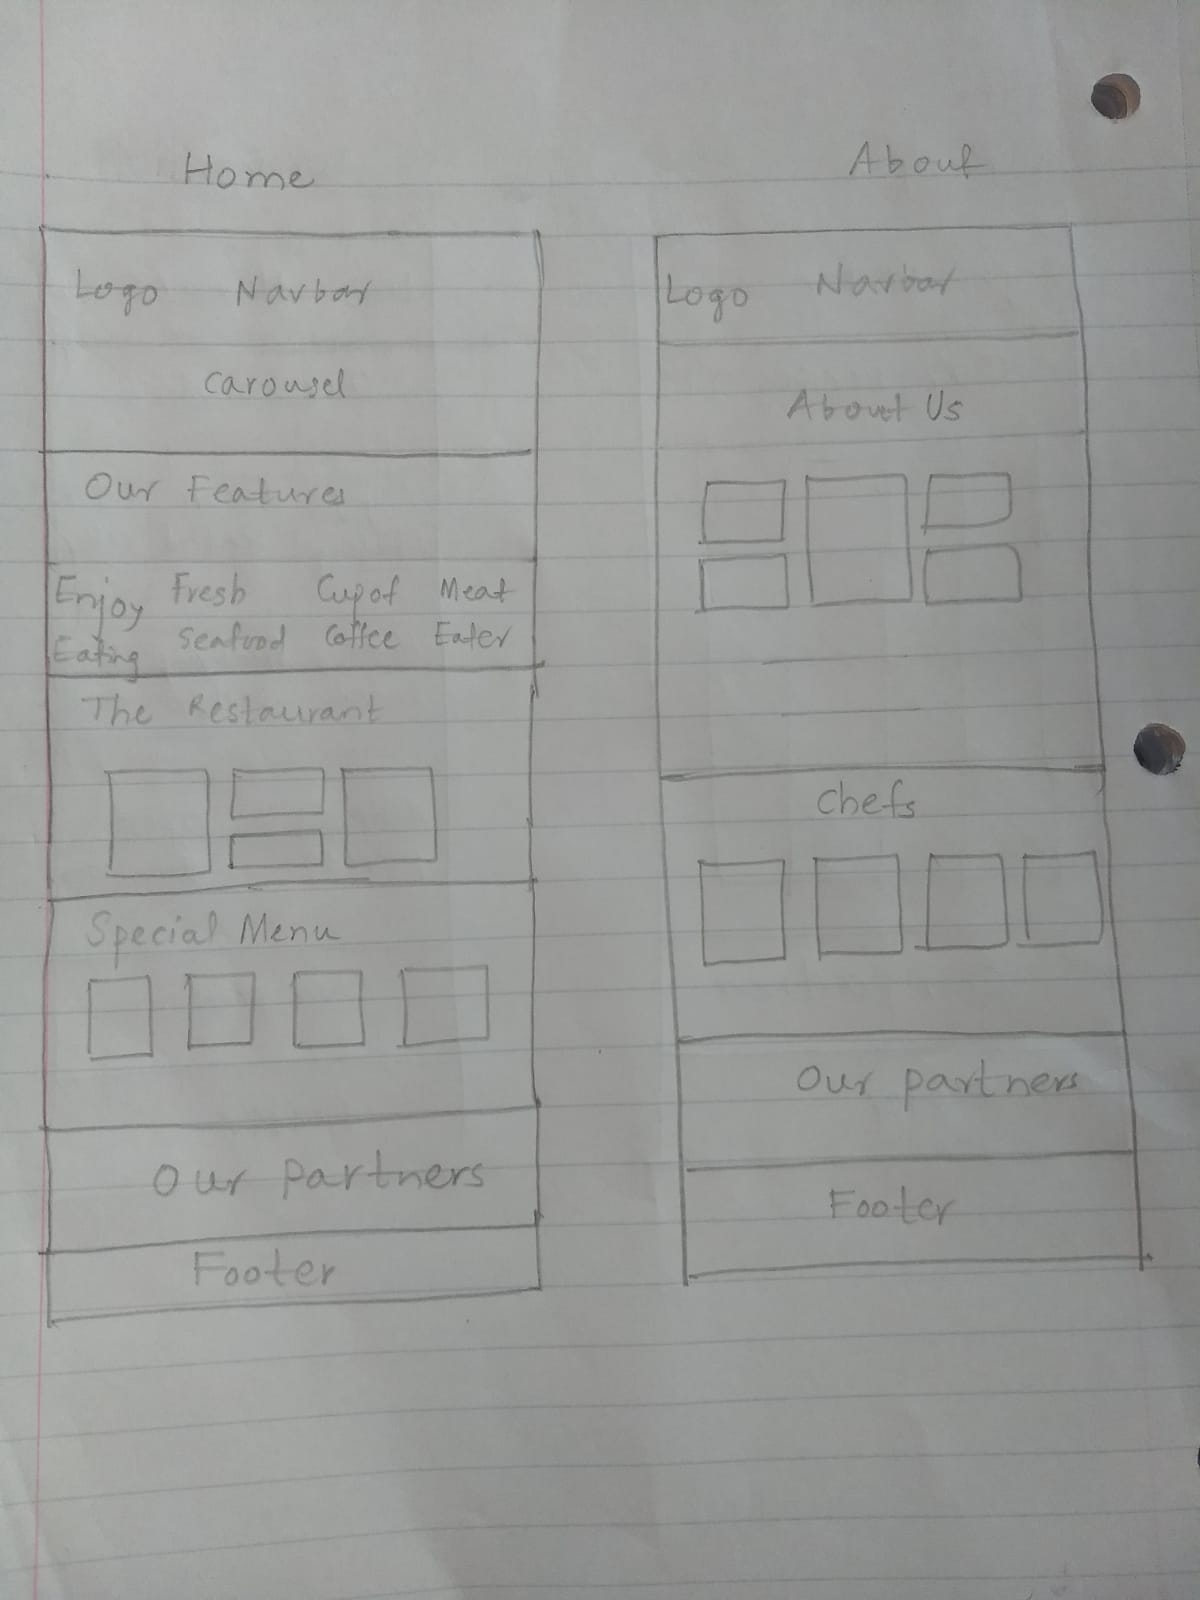 Home
Logo Navbar
Carousel
Our Features
Enjoy Fresh Cup of Meat
Eating Seafood Coffee Eater
The Restaurant
Special Menu
Our Partners
Footer
About
Logo Navbar
About Us
Chefs
Our partners
Footer